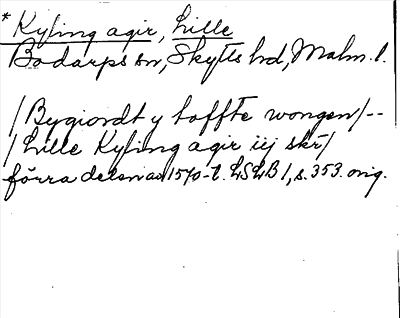 * Kyling agir, Lille
Bodarps sn, Skytts hd, Malm. l.
/ Bygiordt y toffte wongen/--
/ Lille Kyling agir iij skr/
förra delen av 1570-t. LSLB 1, s. 353. orig.